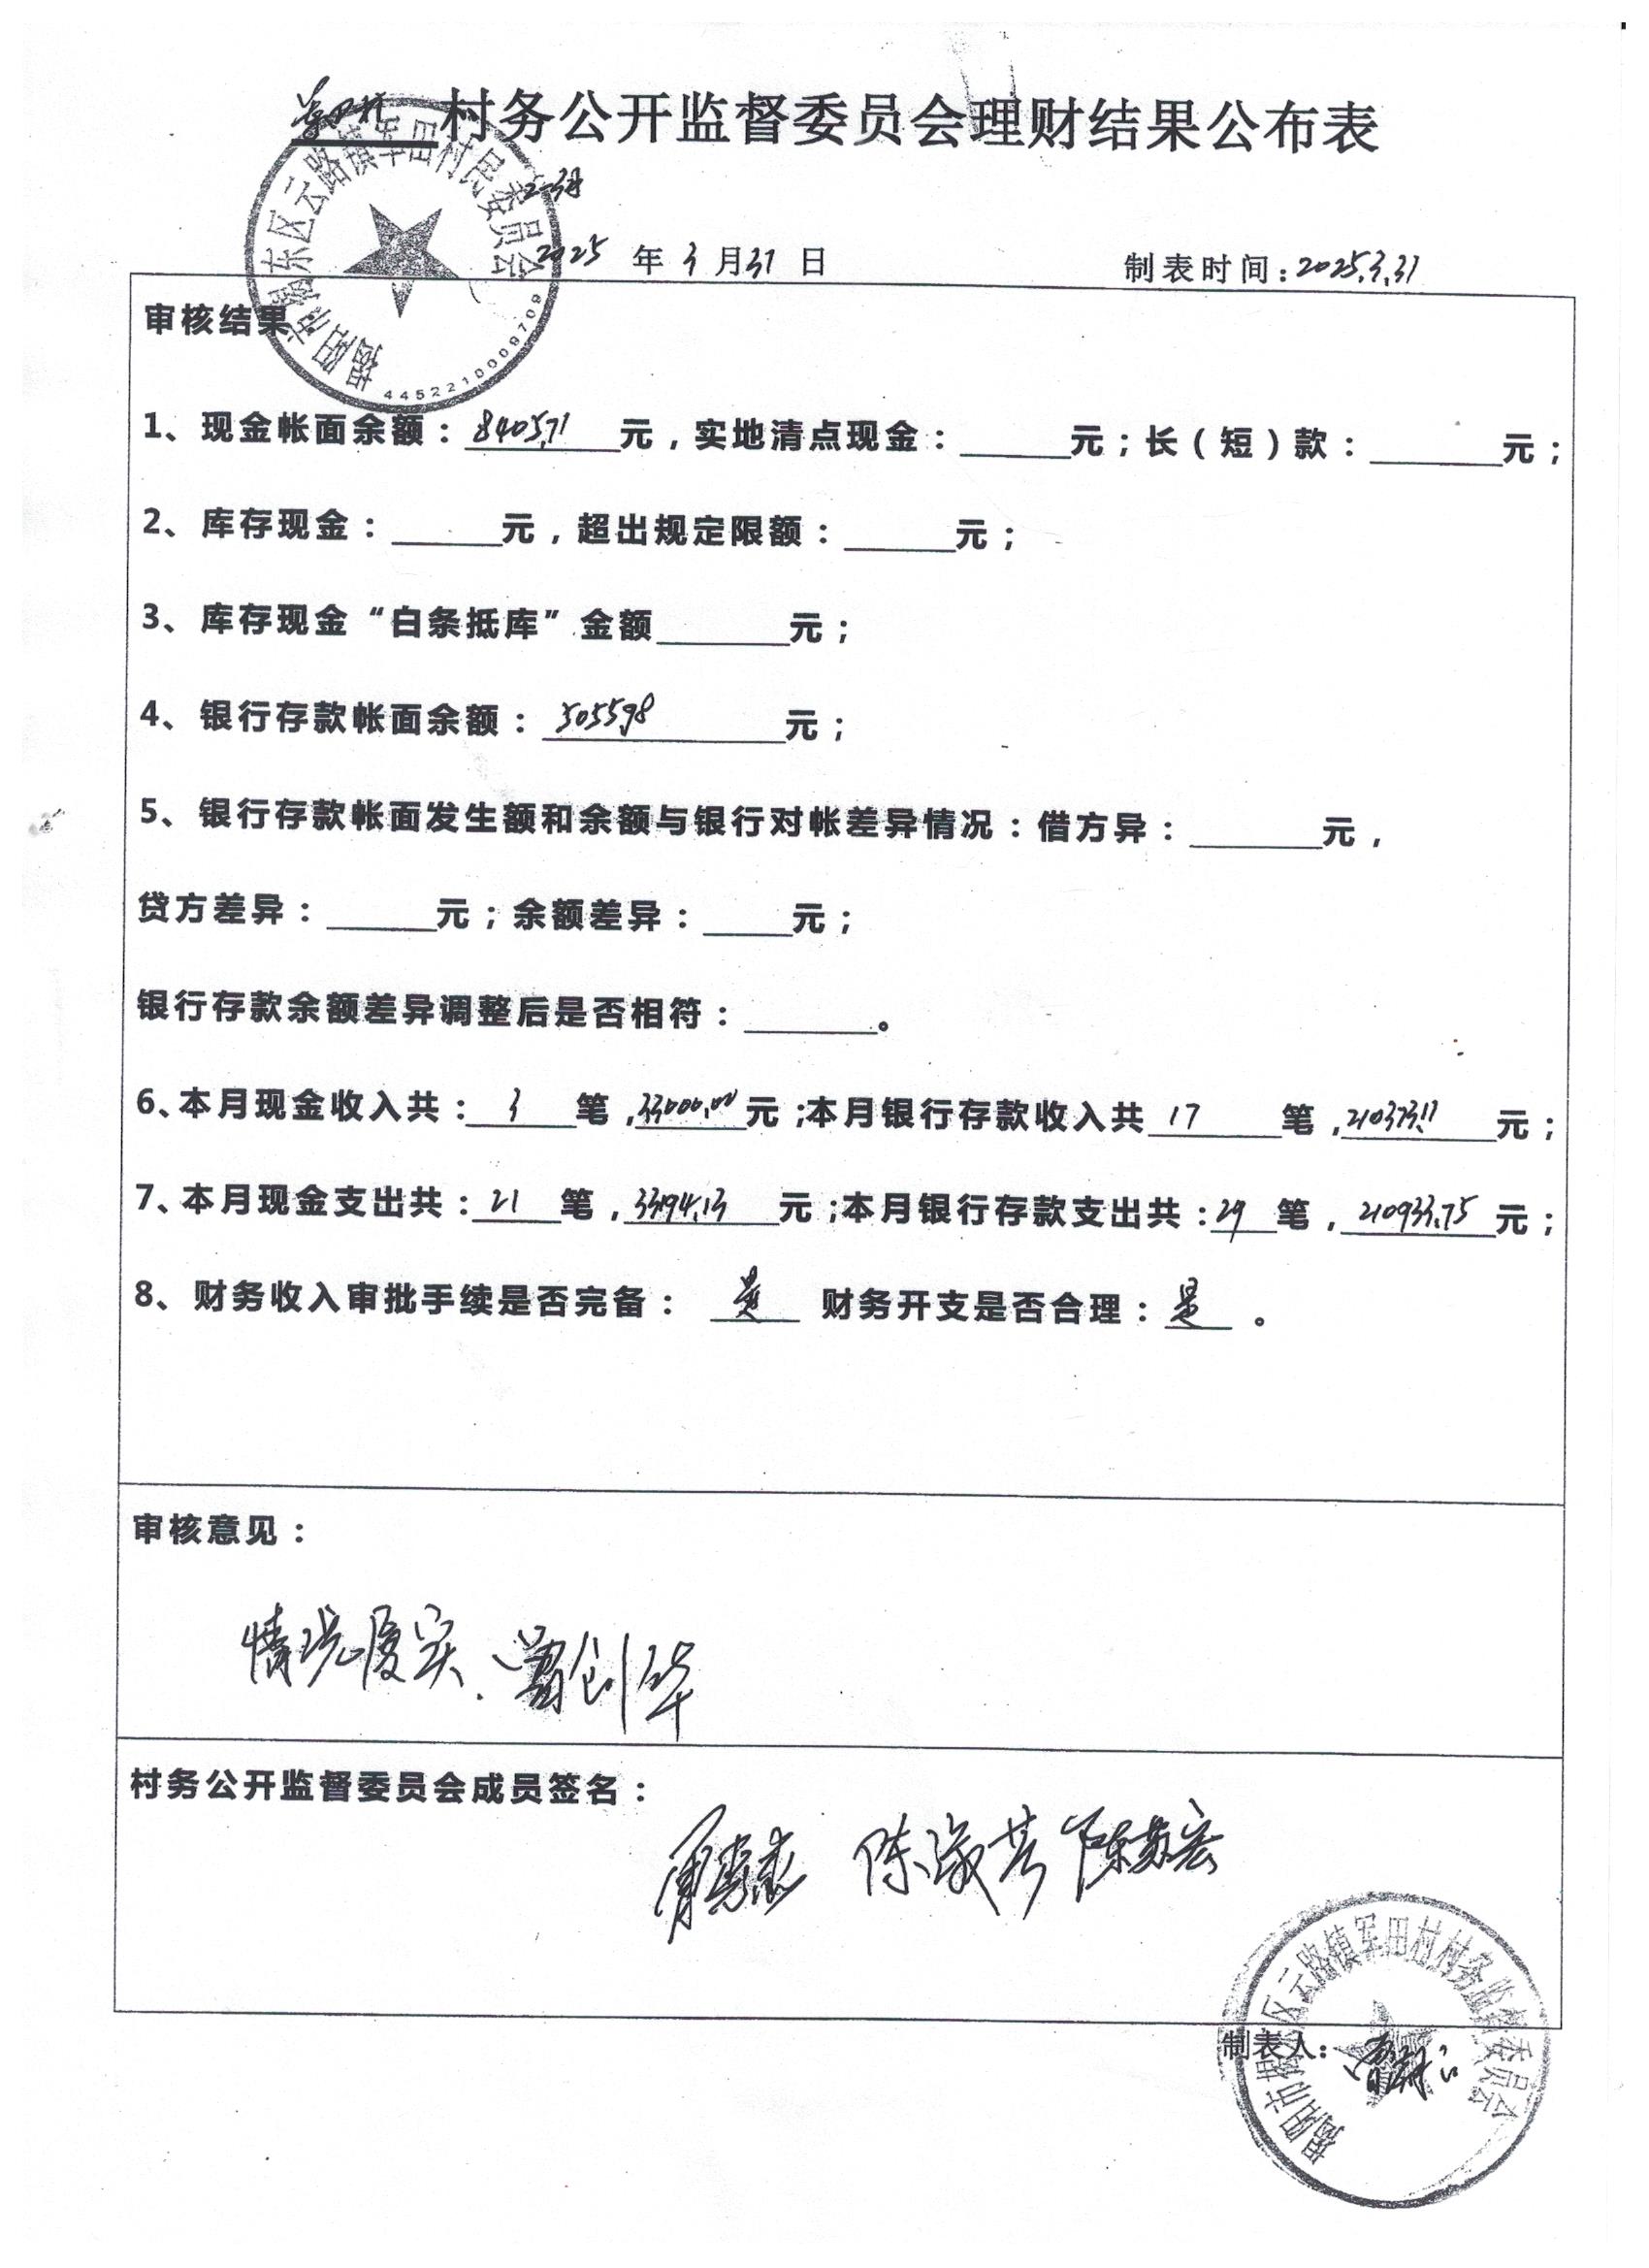 军田村 村务公开监督委员会理财结果公布表
2-3月
2025 年 3 月 31 日 制表时间:2025.3.31
揭阳市揭东区云路镇军田村村民委员会
4452210009709
审核结果:
1、现金帐面余额:8405.71元,实地清点现金:______元;长(短)款:______元;
2、库存现金:______元,超出规定限额:______元;
3、库存现金“白条抵库”金额______元;
4、银行存款帐面余额:5055.98元;
5、银行存款帐面发生额和余额与银行对帐差异情况:借方异:______元,
贷方差异:______元;余额差异:_____元;
银行存款余额差异调整后是否相符:______。
6、本月现金收入共:3笔,33000.00元;本月银行存款收入共17笔,210373.11元;
7、本月现金支出共:21笔,33194.13元;本月银行存款支出共:29笔,210933.75元;
8、财务收入审批手续是否完备:是 财务开支是否合理:是。
审核意见:
情况属实. 曾创华
村务公开监督委员会成员签名:
陈淑芳
揭阳市揭东区云路镇军田村村务监督委员会
制表人: